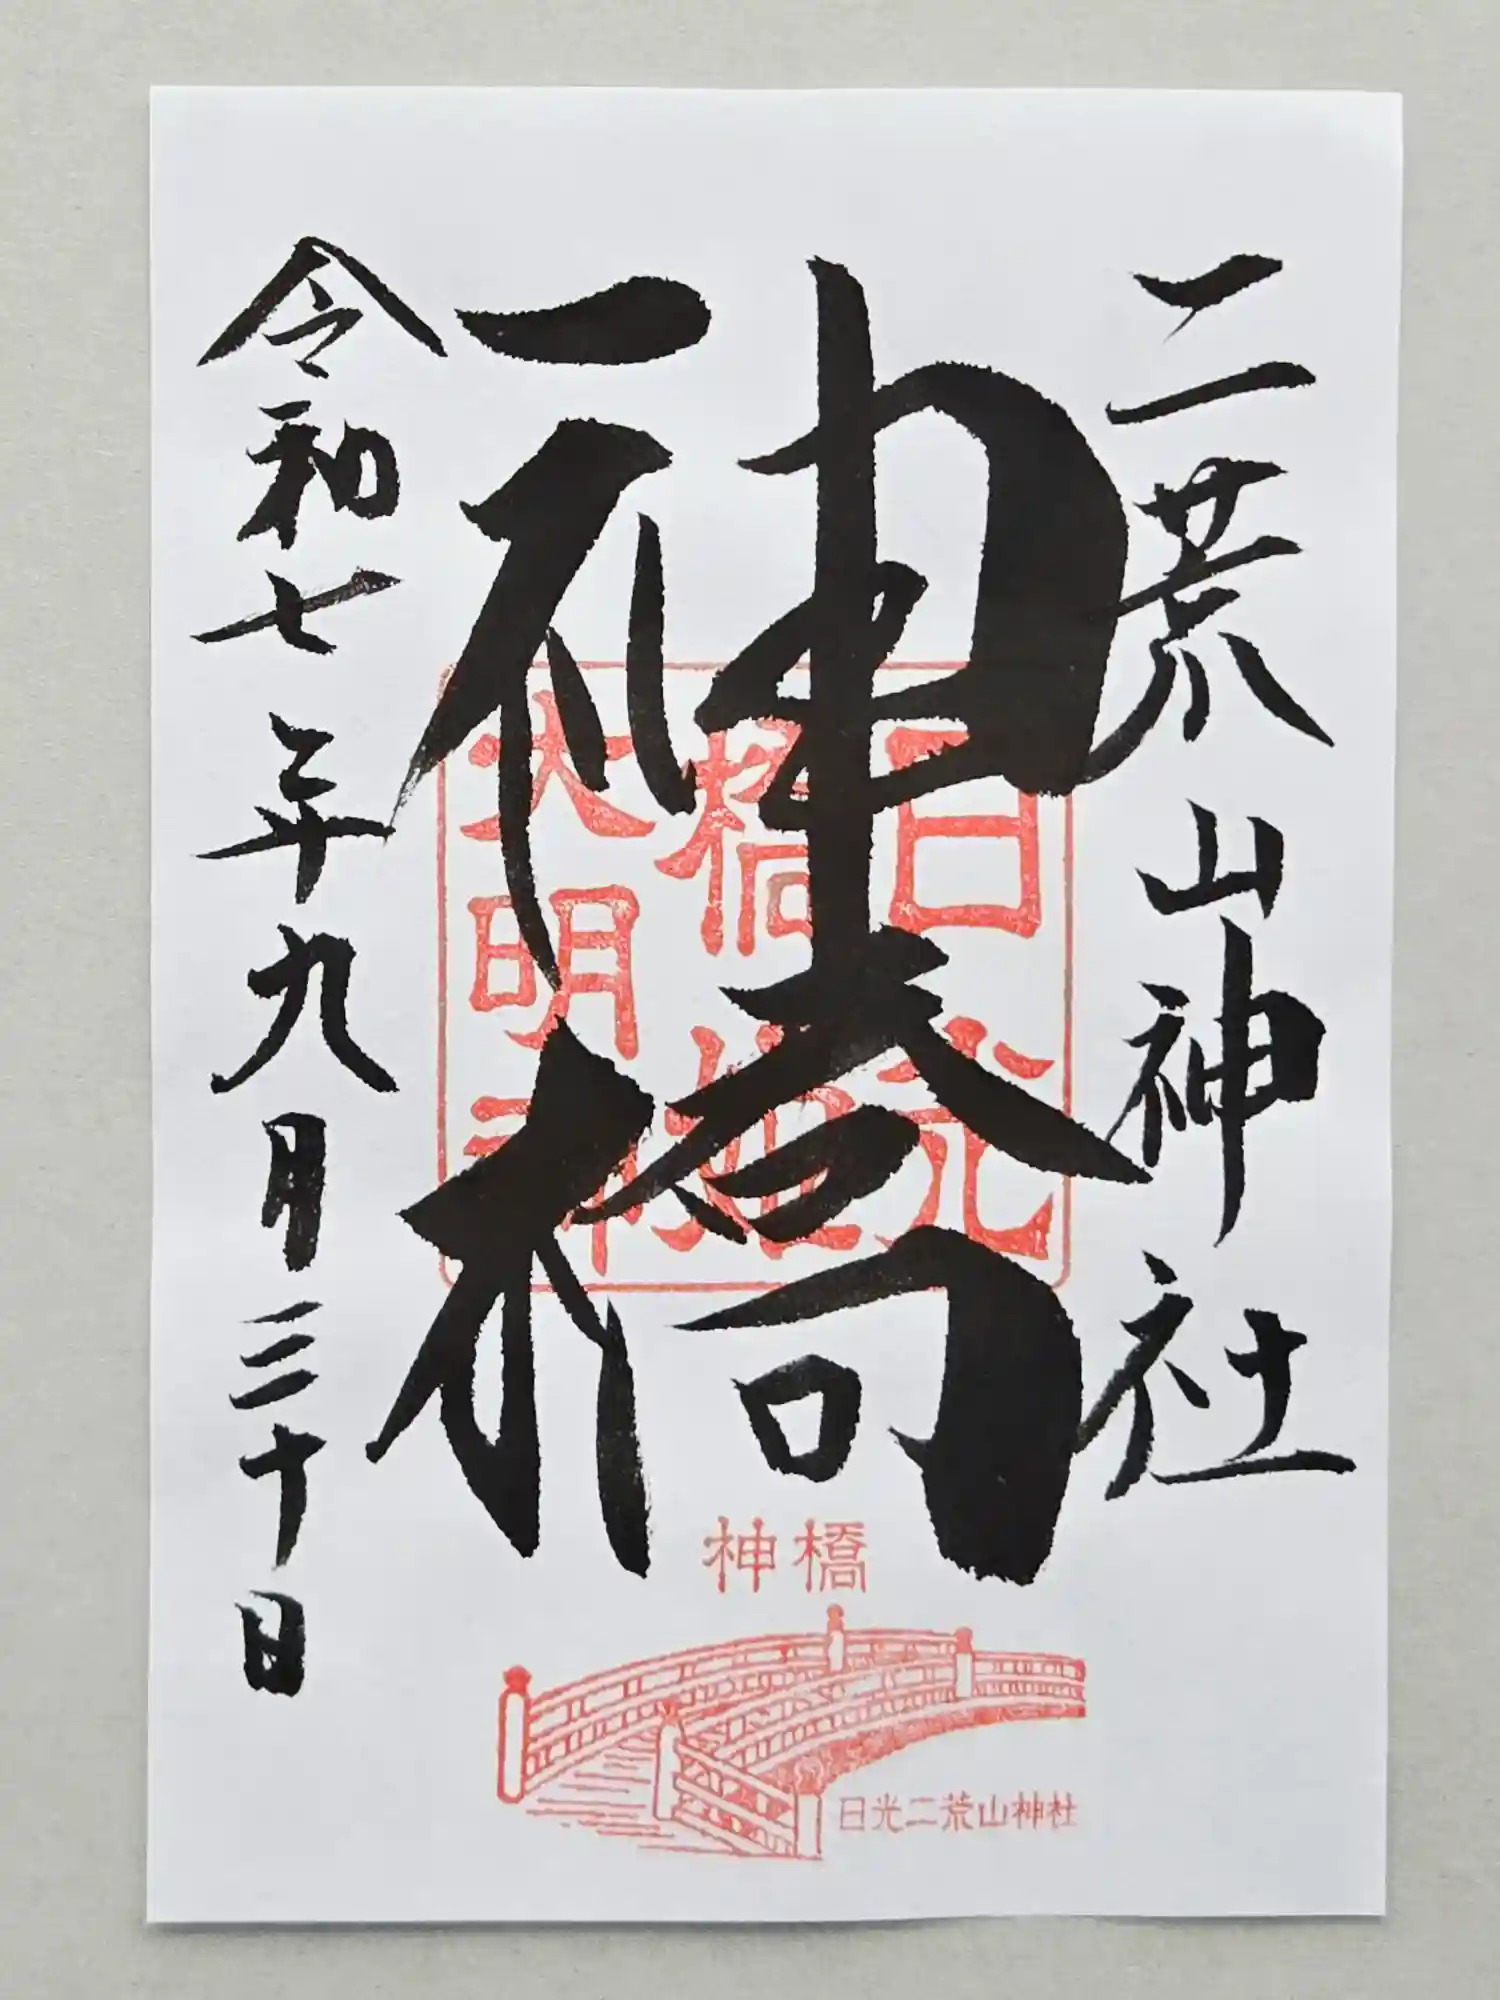 二荒山神社
神橋
令和七年九月三十日
日光
橋姫
大明神
神橋
日光二荒山神社